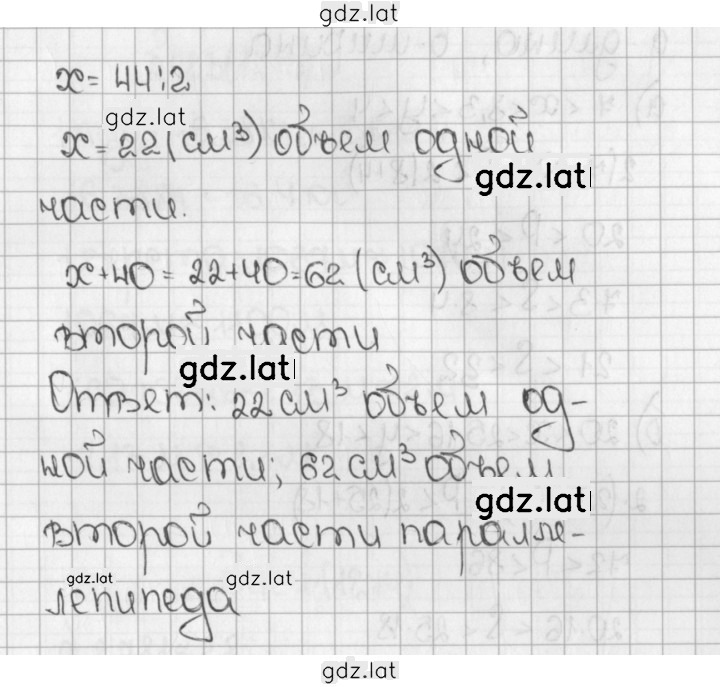 gdz.lat
x = 44:2
gdz.lat
x = 22 (см³) объем одной
gdz.lat
части.
x+40 = 22+40=62 (см³) объем
второй части
gdz.lat
Ответ: 22 см³ объем од-
ной части; 62 см³ объем
gdz.lat
второй части паралле-
gdz.lat gdz.lat
лепипеда
gdz.lat